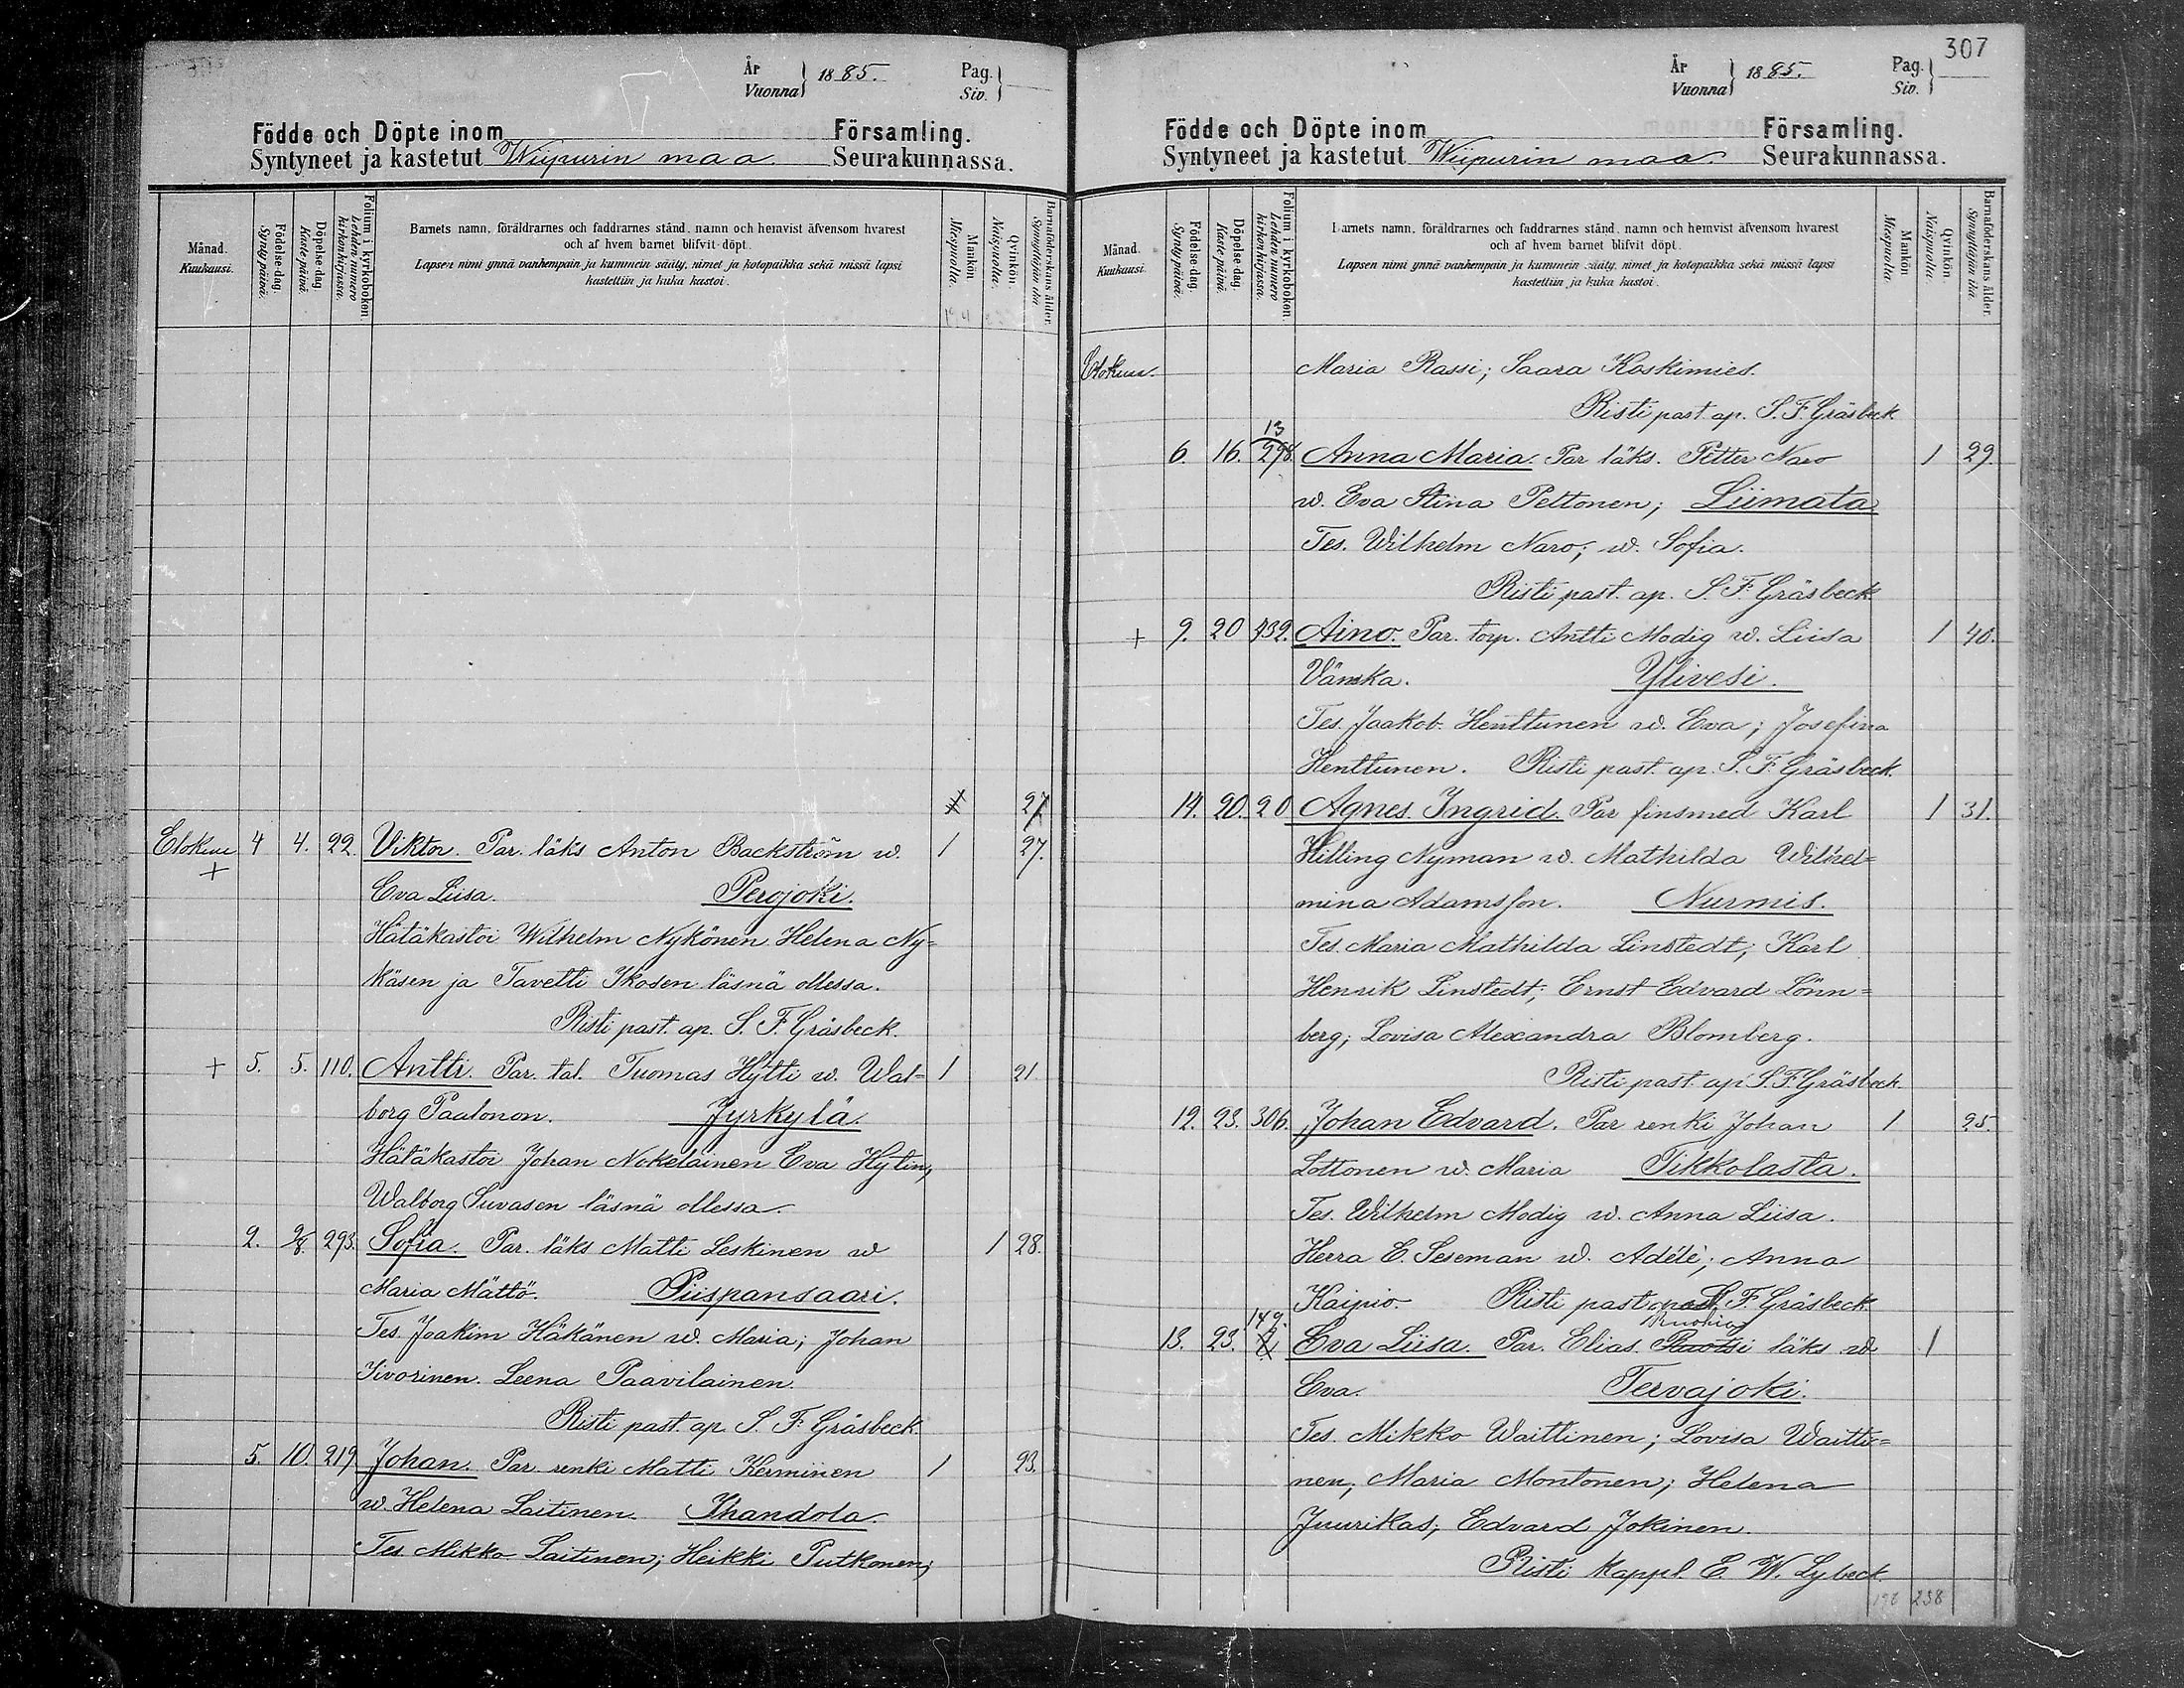 År
Vuonna } 1885.
Pag.
Siv. }
Födde och Döpte inom Församling.
Syntyneet ja kastetut Wiipurin maa Seurakunnassa.
Månad.
Kuukausi.
Födelse-dag.
Syntypäivä.
Döpelse-dag.
Kaste-päivä.
Folium i kyrkoboken.
Lehden numero
kirkonkirjassa.
Barnets namn, föräldrarnes och faddrarnes stånd, namn och hemvist äfvensom hvarest
och af hvem barnet blifvit döpt.
Lapsen nimi ynnä vanhempain ja kummein sääty, nimet ja kotopaikka sekä missä lapsi
kastettiin ja kuka kastoi.
Mankön.
Miespuolta.
Qvinkön.
Naispuolta.
Barnaföderskans ålder.
Synnyttäjän ikä.
27
Elokuu 4 4. 22. Viktor. Par. läks Anton Backström w. 1 27.
+ Eva Liisa. Perojoki.
Hätäkastoi Wilhelm Nykönen Helena Ny=
käsen ja Tavetti Ikosen läsnä ollessa.
Risti past. ap. S. F. Gräsbeck.
+ 5. 5. 110. Antti. Par. tal. Tuomas Hytti w. Wal= 1 21.
borg Paalonon. Jyrkylä.
Hätäkastoi Johan Nokelainen Eva Hytin,
Walborg Suvasen läsnä ollessa.
2. 9/8. 293. Sofia. Par. läks Matti Leskinen w 1 28.
Maria Mättö. Piispansaari.
Tes. Joakim Häkänen w. Maria; Johan
Iivorinen. Leena Paavilainen.
Risti past. ap. S. F. Gräsbeck.
5. 10. 219 Johan. Par. renki Matti Kerminen 1 23.
w. Helena Laitinen. Ihandola.
Tes. Mikko Laitinen; Heikki Putkonen;
307
År
Vuonna } 1885.
Pag.
Siv. }
Födde och Döpte inom Församling.
Syntyneet ja kastetut Wiipurin maa Seurakunnassa.
Månad.
Kuukausi.
Födelse-dag.
Syntypäivä.
Döpelse-dag.
Kaste-päivä.
Folium i kyrkoboken.
Lehden numero
kirkonkirjassa.
Barnets namn, föräldrarnes och faddrarnes stånd, namn och hemvist äfvensom hvarest
och af hvem barnet blifvit döpt.
Lapsen nimi ynnä vanhempain ja kummein sääty, nimet ja kotopaikka sekä missä lapsi
kastettiin ja kuka kastoi.
Mankön.
Miespuolta.
Qvinkön.
Naispuolta.
Barnaföderskans ålder.
Synnyttäjän ikä.
Elokuu. Maria Rassi; Saara Koskimies.
Risti past. ap. S. F. Gräsbeck
13
6. 16. 298. Anna Maria. Par läks. Petter Naro 1 29.
w. Eva Stina Peltonen; Liimata
Tes. Wilhelm Naro; w. Sofia.
Risti past. ap. S. F. Gräsbeck.
+ 9. 20 Aino. Par. torp. Antti Modig w. Liisa 1 40.
Vänska. Ylivesi.
Tes. Jaakob. Henttunen w. Eva; Josefina
Henttunen. Risti past. ap. S. F. Gräsbeck.
14. 20. 20 Agnes. Ingrid. Par finsmed Karl 1 31.
Hilling Nyman w. Mathilda Wilhel=
mina Adamsson. Nurmis.
Tes. Maria Mathilda Linstedt; Karl
Henrik Linstedt; Ernst Edvard Lönn=
berg; Lovisa Alexandra Blomberg.
Risti past. ap. S. F. Gräsbeck.
12. 23. 306. Johan Edvard. Par renki Johan 1 25.
Lottonen w. Maria Tikkolasta.
Tes. Wilhelm Modig w. Anna Liisa.
Herra E. Seseman w. Adéle; Anna
Kaipio. Risti past. S. F. Gräsbeck.
149.
13. 23. Eva Liisa. Par. Elias läks w 1
Eva. Tervajoki.
Tes. Mikko Waittinen; Lovisa Waitti=
nen; Maria Montonen; Helena
Juurikas; Edvard Jokinen.
Risti kappl. E. W. Lybeck.
238